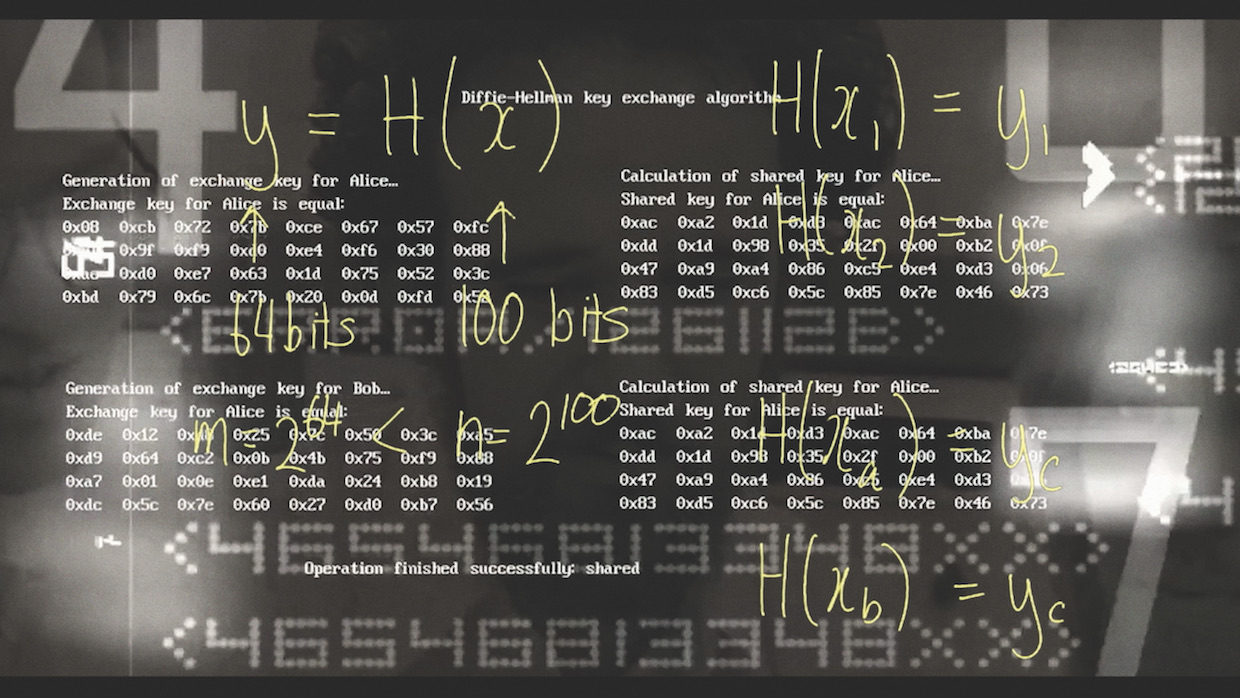 Diffie-Hellman key exchange algorithm
y = H(x)
H(x₁) = y₁
Generation of exchange key for Alice...
Exchange key for Alice is equal:
0x08 0xcb 0x72 0x7b 0xce 0x67 0x57 0xfc
0x9f 0xf9 0xd0 0xe4 0xf6 0x30 0x88
0xae 0xd0 0xe7 0x63 0x1d 0x75 0x52 0x3c
0xbd 0x79 0x6c 0x7b 0x20 0x0d 0xfd
Calculation of shared key for Alice...
Shared key for Alice is equal:
0xac 0xa2 0x1d 0xd3 0xac 0x64 0xba 0x7e
0xdd 0x1d 0x98 0x35 0x2f 0x00 0xb2 0x0f
0x47 0xa9 0xa4 0x86 0xc5 0xe4 0xd3 0x06
0x83 0xd5 0xc6 0x5c 0x85 0x7e 0x46 0x73
H(x₂) = y₂
64 bits
100 bits
Generation of exchange key for Bob...
Exchange key for Alice is equal:
0xde 0x12 0x25 0x7c 0x50 0x3c 0xa5
0xd9 0x64 0xc2 0x0b 0x4b 0x75 0xf9 0x88
0xa7 0x01 0x0e 0xe1 0xda 0x24 0xb8 0x19
0xdc 0x5c 0x7e 0x60 0x27 0xd0 0xb7 0x56
m = 2⁶⁴ < n = 2¹⁰⁰
Calculation of shared key for Alice...
Shared key for Alice is equal:
0xac 0xa2 0x1d 0xd3 0xac 0x64 0xba 0x7e
0xdd 0x1d 0x98 0x35 0x2f 0x00 0xb2 0x0f
0x47 0xa9 0xa4 0x86 0xe4 0xd3
0x83 0xd5 0xc6 0x5c 0x85 0x7e 0x46 0x73
H(xₐ) = y_c
Operation finished successfully: shared
H(x_b) = y_c
4
7